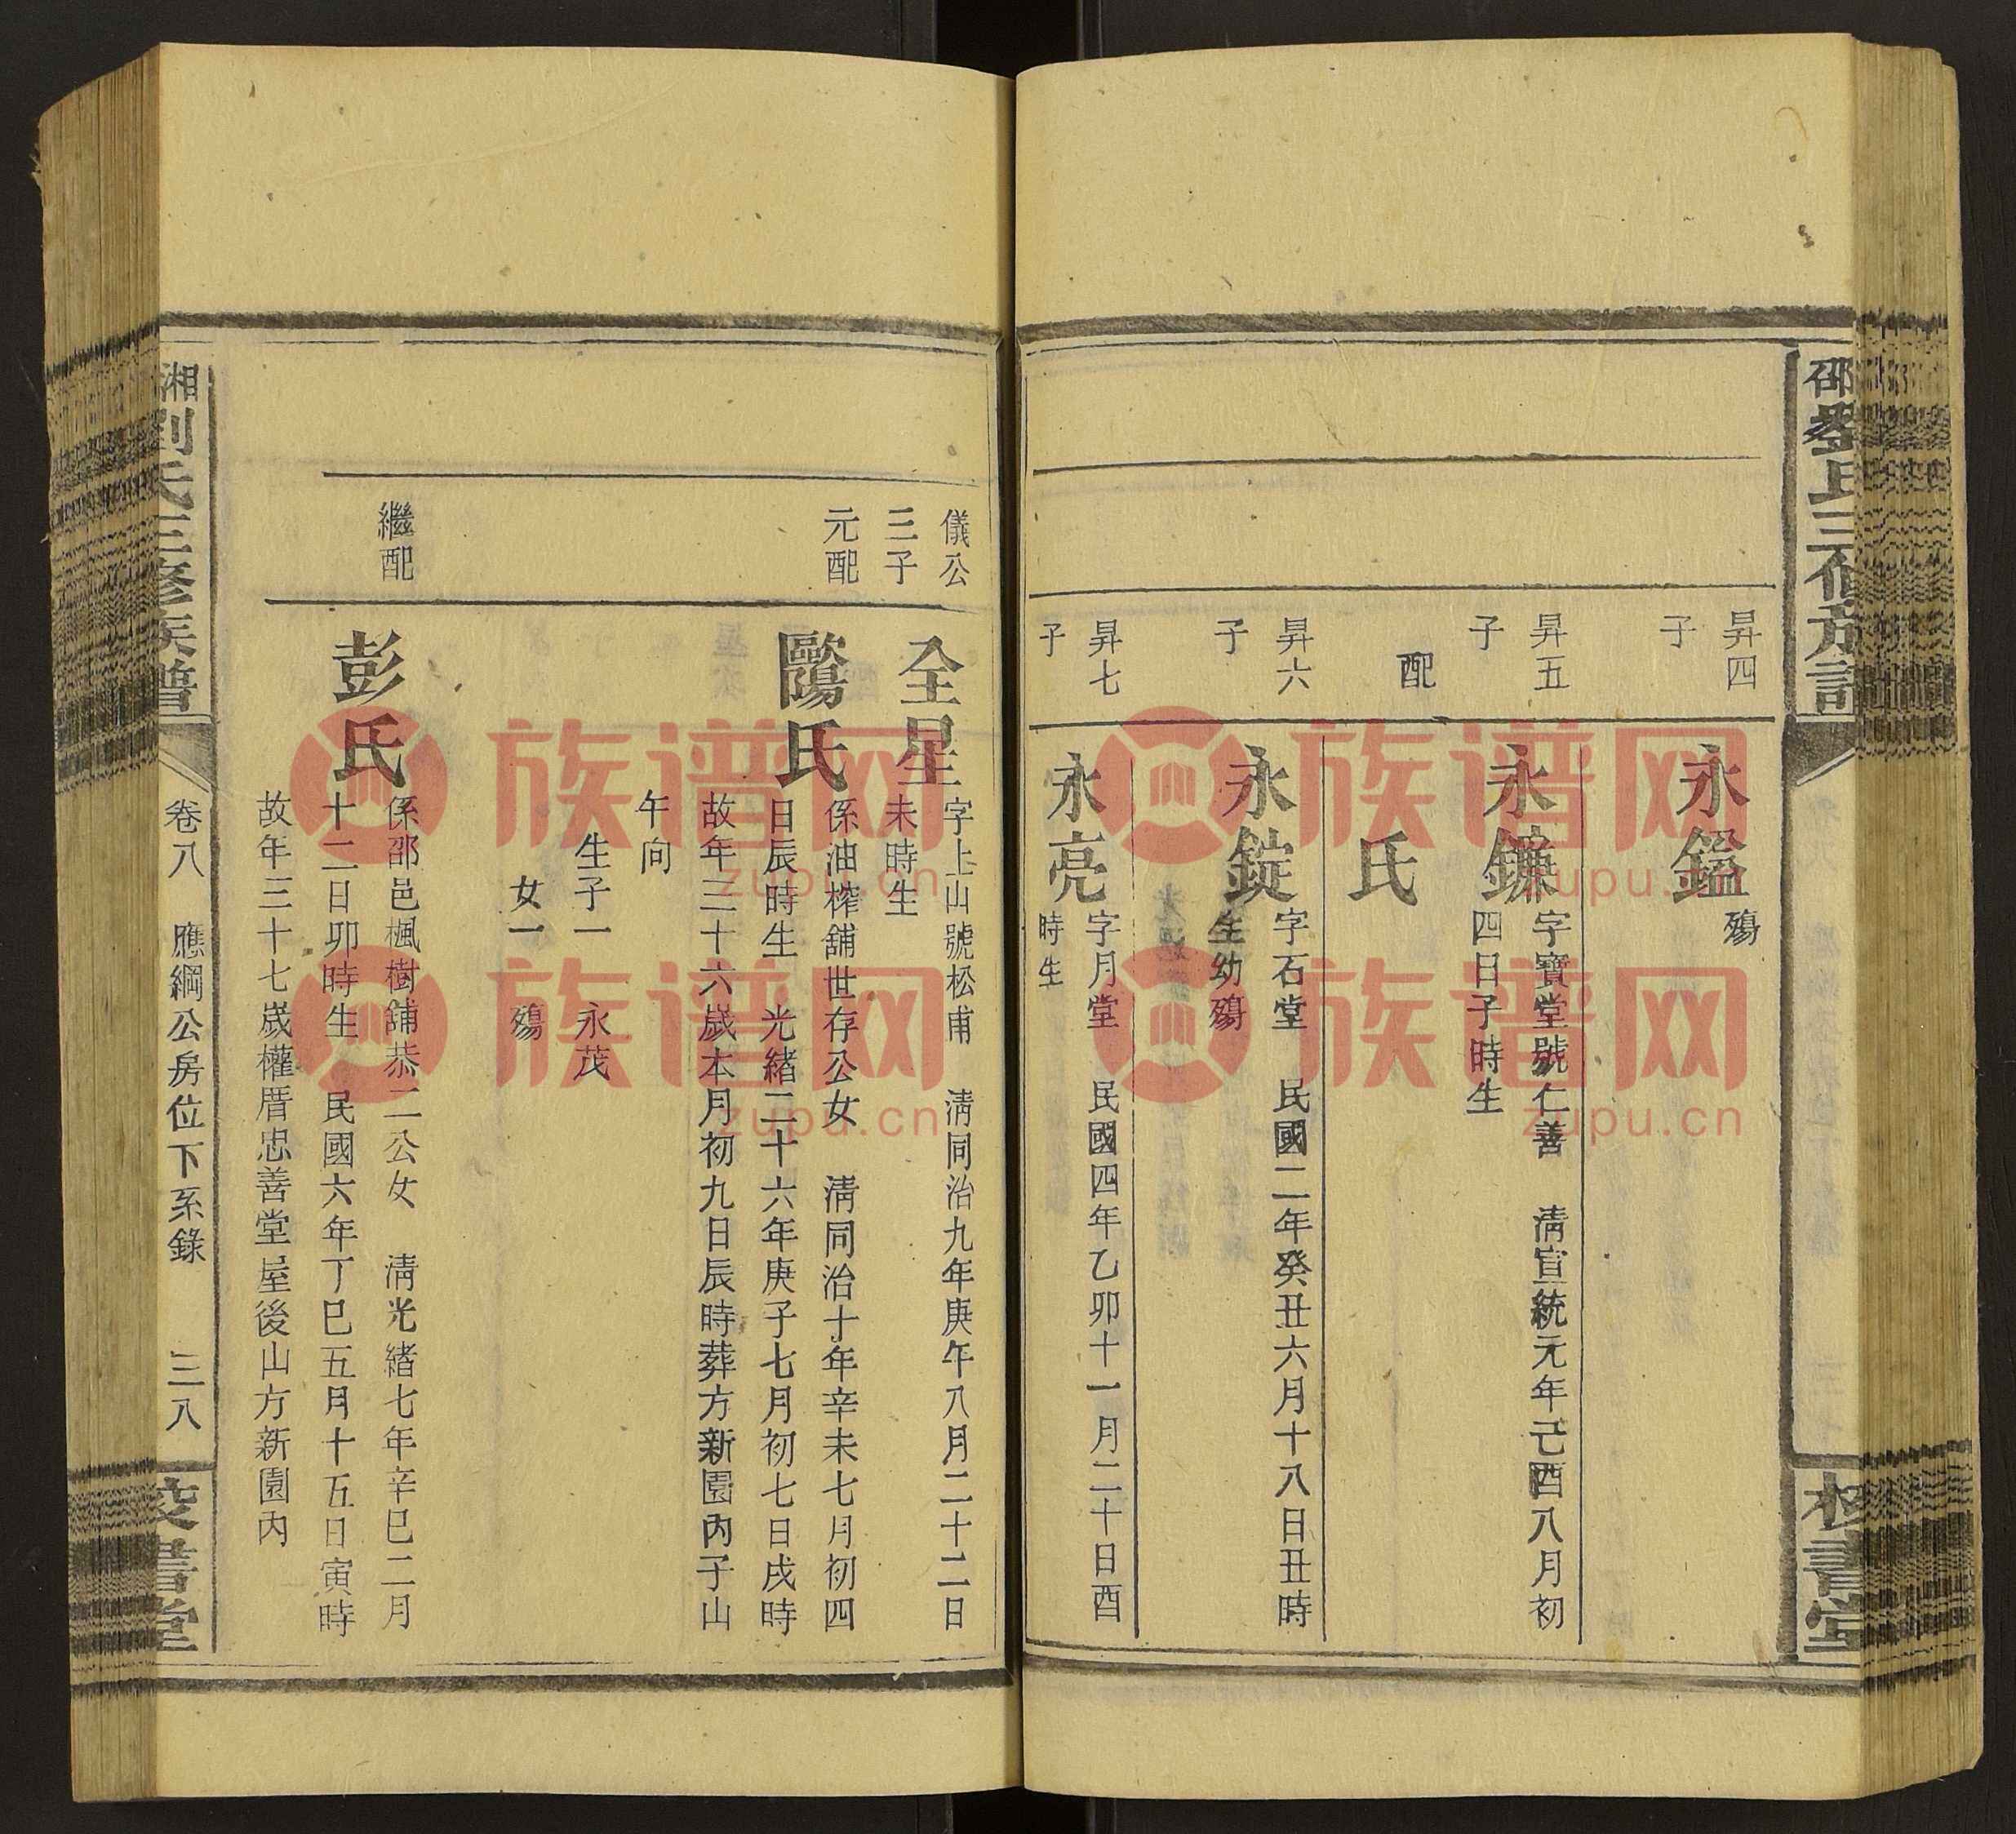 昇四
子
永鎰
殤
昇五
子
永鐮
字寶堂號仁善 淸宣統元年己酉八月初
四日子時生
配
氏
昇六
子
永錠
字石堂 民國二年癸丑六月十八日丑時
生幼殤
昇七
子
永亮
字月堂 民國四年乙卯十一月二十日酉
時生
儀公
三子
全星
字上山號松甫 淸同治九年庚午八月二十二日
未時生
元配
歐陽氏
係油榨舖世存公女 淸同治十年辛未七月初四
日辰時生 光緒二十六年庚子七月初七日戌時
故年三十六歲本月初九日辰時葬方新園內子山
午向
生子一 永茂
女一 殤
繼配
彭氏
係邵邑楓樹舖恭二公女 淸光緒七年辛巳二月
十二日卯時生 民國六年丁巳五月十五日寅時
故年三十七歲權厝忠善堂屋後山方新園內
湘劉氏三修族譜
卷八 應綱公房位下系錄 三八
族谱网
zupu.cn
族谱网
zupu.cn
族谱网
zupu.cn
族谱网
zupu.cn